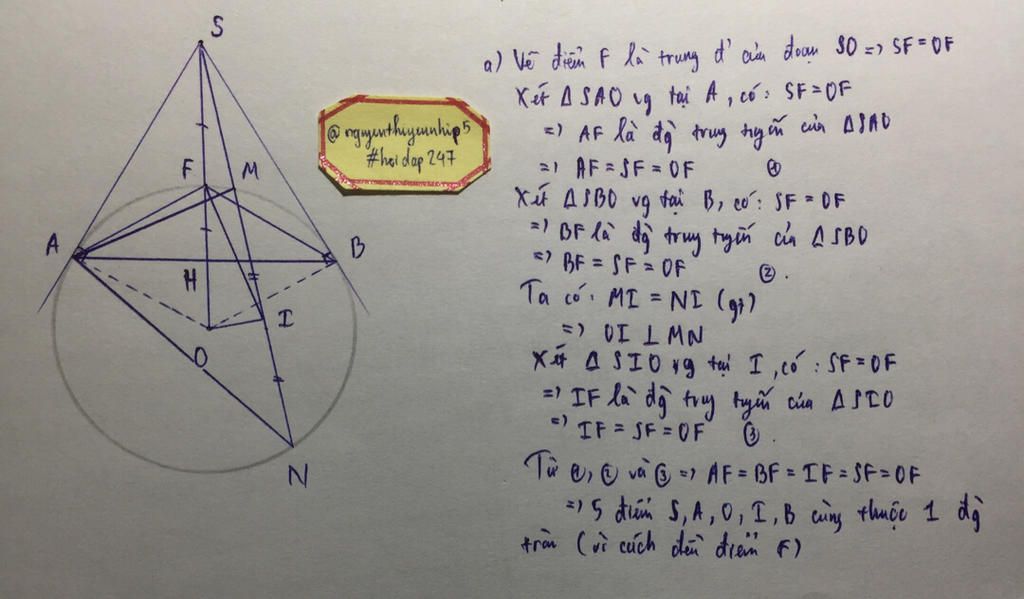 S
F
M
A
B
H
I
O
N
@nguyenthiyennhip5
#hoidap247
a) Vẽ điểm F là trung đ' của đoạn SO => SF = OF
Xét Δ SAO vg tại A, có: SF = OF
=> AF là đg trung tuyến của ΔSAO
=> AF = SF = OF ①
Xét ΔSBO vg tại B, có: SF = OF
=> BF là đg trung tuyến của ΔSBO
=> BF = SF = OF ②.
Ta có: MI = NI (gt)
=> OI ⊥ MN
Xét Δ SIO vg tại I, có: SF = OF
=> IF là đg trung tuyến của ΔSIO
=> IF = SF = OF ③.
Từ ①, ② và ③ => AF = BF = IF = SF = OF
=> 5 điểm S, A, O, I, B cùng thuộc 1 đg
tròn (vì cách đều điểm F)